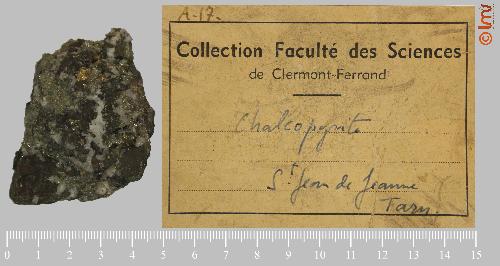 A-17.
Collection Faculté des Sciences
de Clermont-Ferrand
Chalcopyrite
St Jean de Jeanne
Tarn.
© lmv
0 1 2 3 4 5 6 7 8 9 10 11 12 13 14 15